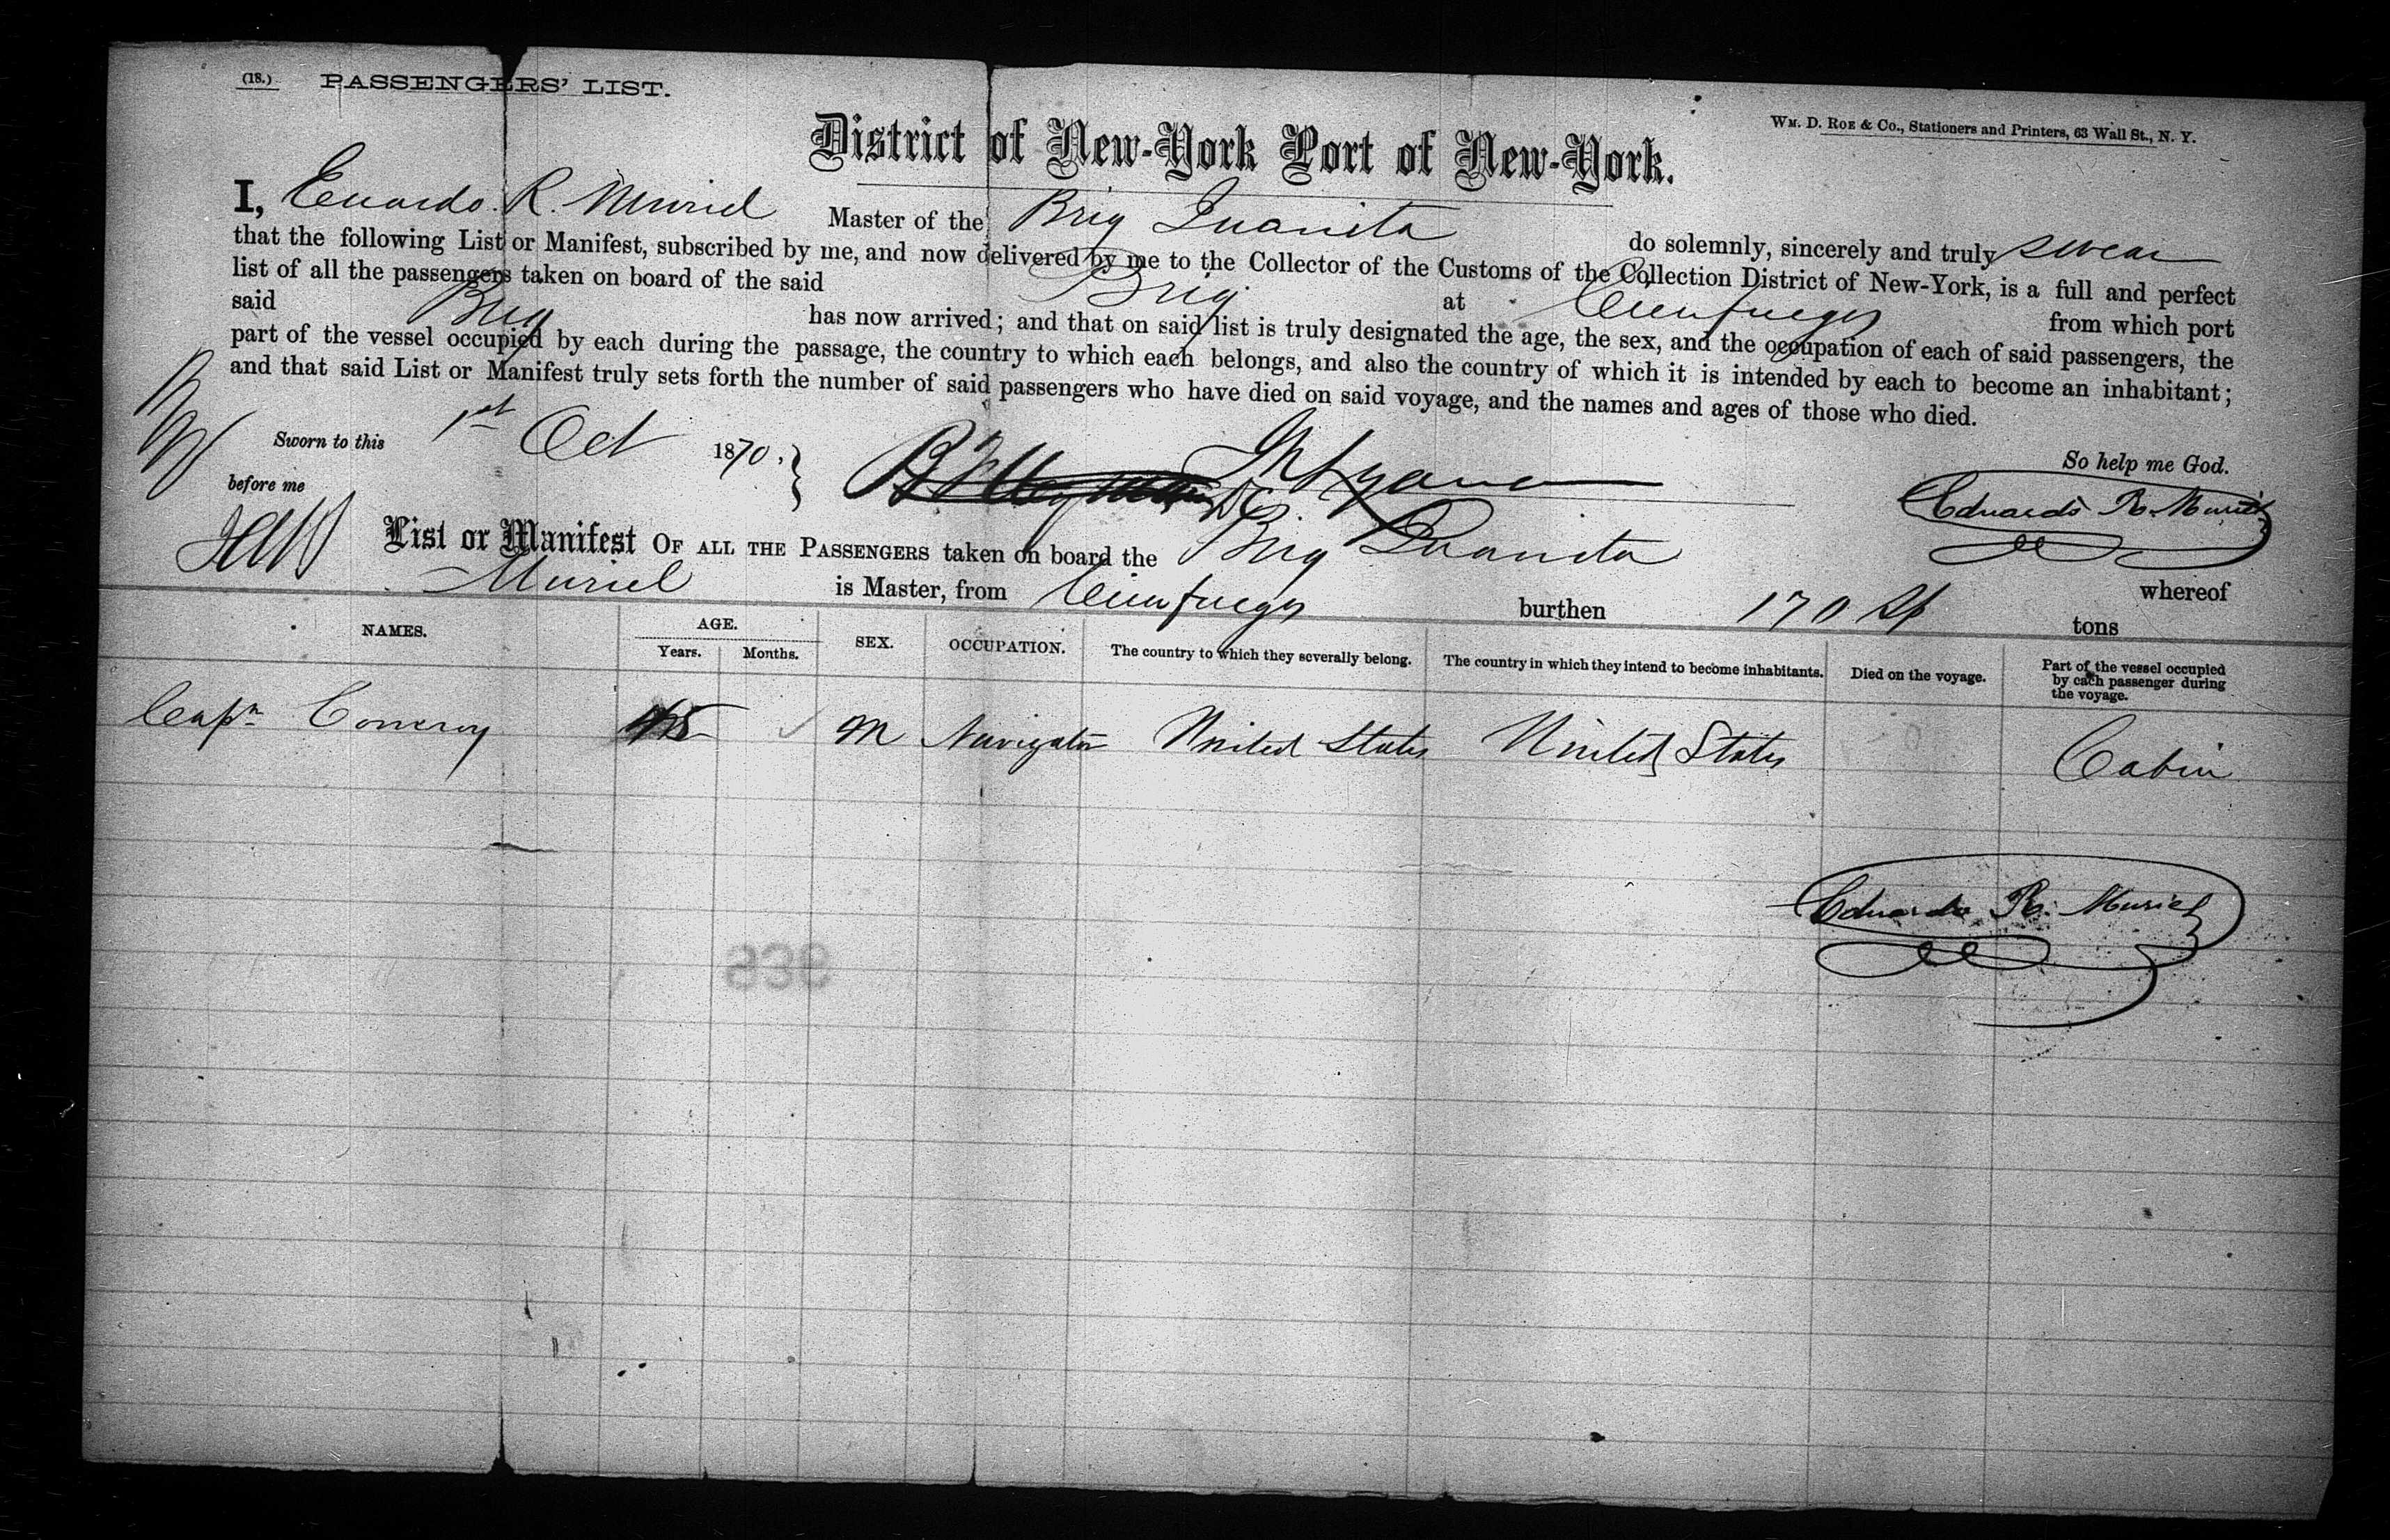 (18.) PASSENGERS' LIST.
WM. D. ROE & CO., Stationers and Printers, 63 Wall St., N. Y.
District of New-York Port of New-York.
I, Euardo R. Muriel Master of the Brig Juanita do solemnly, sincerely and truly swear
that the following List or Manifest, subscribed by me, and now delivered by me to the Collector of the Customs of the Collection District of New-York, is a full and perfect
list of all the passengers taken on board of the said Brig at Cienfuegos from which port
said Brig has now arrived; and that on said list is truly designated the age, the sex, and the occupation of each of said passengers, the
part of the vessel occupied by each during the passage, the country to which each belongs, and also the country of which it is intended by each to become an inhabitant;
and that said List or Manifest truly sets forth the number of said passengers who have died on said voyage, and the names and ages of those who died.
Sworn to this 1st Oct 1870.
So help me God.
before me
Eduardo R. Muriel
List or Manifest OF ALL THE PASSENGERS taken on board the Brig Juanita whereof
Muriel is Master, from Cienfuegos burthen 170 tons
NAMES. AGE. Years. Months. SEX. OCCUPATION. The country to which they severally belong. The country in which they intend to become inhabitants. Died on the voyage. Part of the vessel occupied by each passenger during the voyage.
Capn Coneroy 45 M Navigator United States United States Cabin
Eduardo R. Muriel